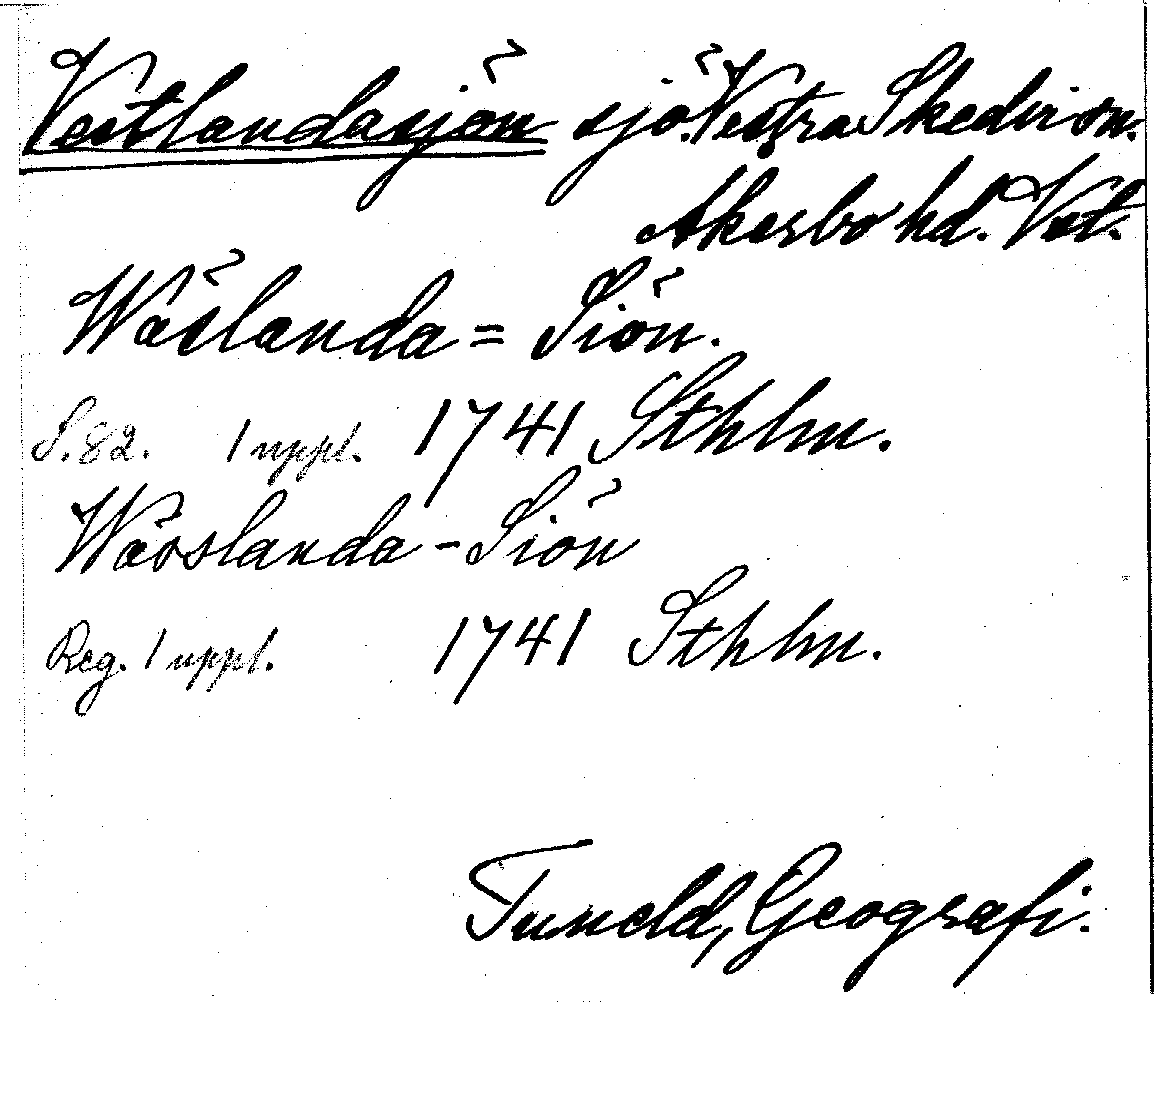 Vestlandasjön sjö. Vestra Skedvi sn.
Åkerbo hd. Vstm.
Wäslanda = Siön.
S. 82. 1 uppl. 1741 Sthlm.
Wäoslanda - Siön
Reg. 1 uppl. 1741 Sthlm.
Tuneld, Geografi.